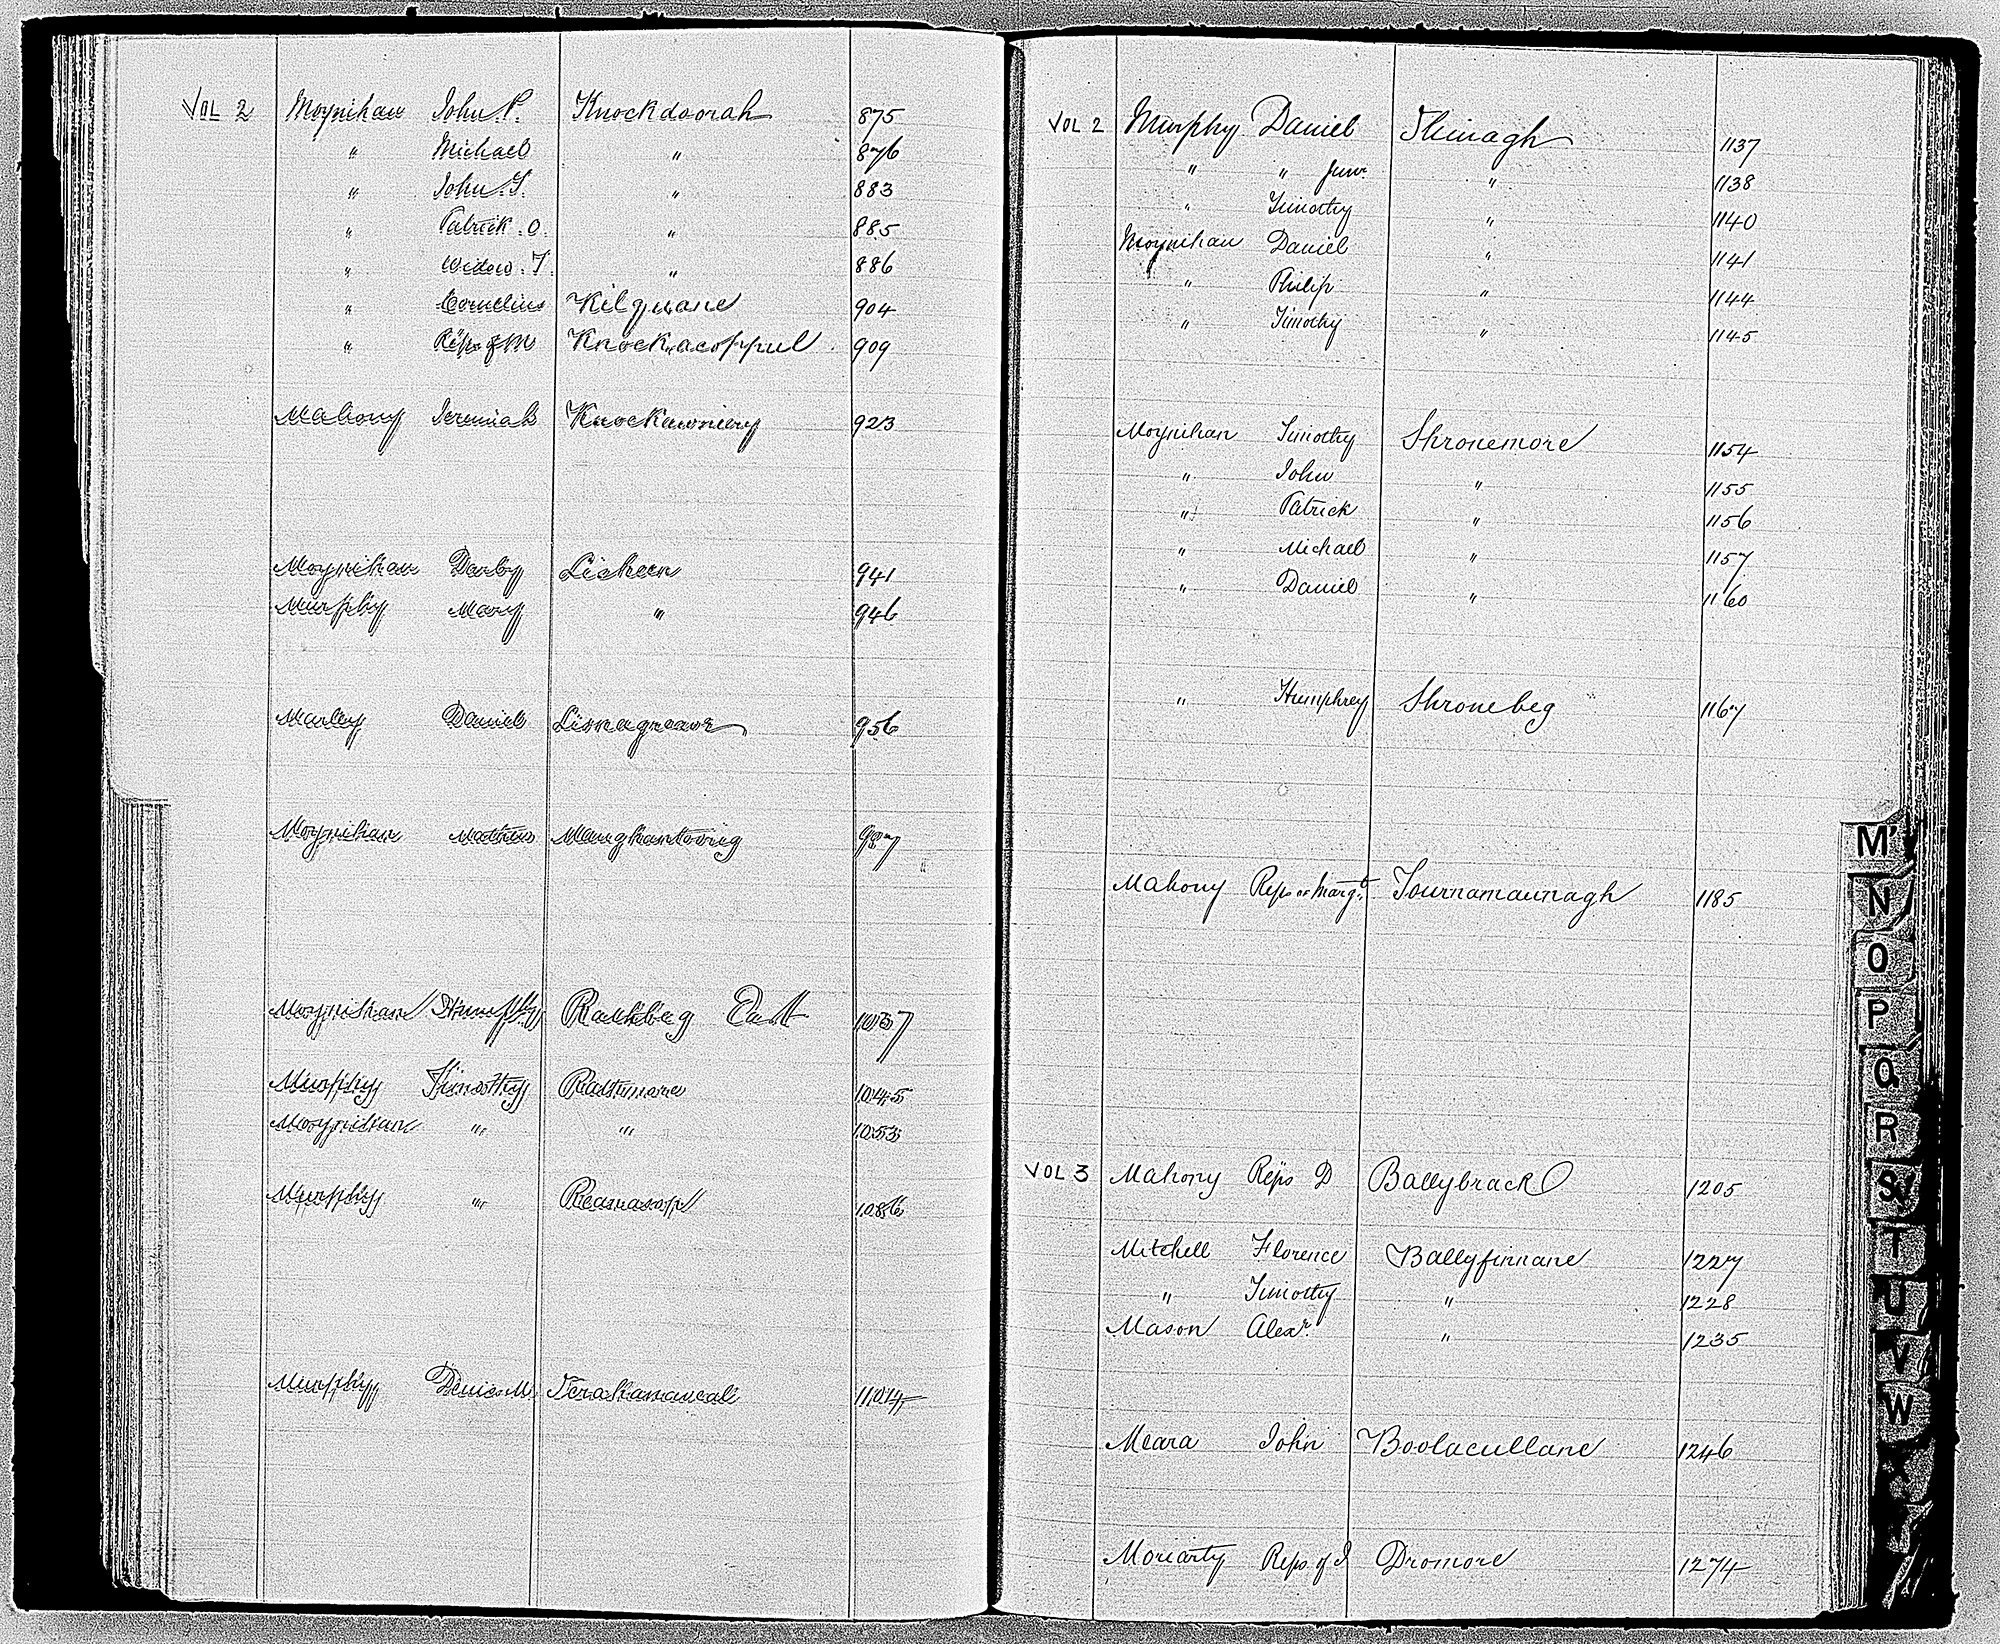 VOL 2 Moynihan John.P. Knockdoorah 875
" Michael " 876
" John.T. " 883
" Patrick.O. " 885
" Widow.T. " 886
" Cornelius Kilquane 904
" Reps of M Knockacoppul 909
Mahony Jeremiah 923
Moynihan Darby Lisheen 941
Murphy Mary " 946
Marley Daniel 956
Moynihan Mathew Maughantoorig
Moynihan Humphy East
Murphy Timothy Rathmore 1045
Moynihan " " 1053
Murphy " 1086
Murphy Denis M. 1104
VOL 2 Murphy Daniel Shinagh 1137
" " Junr. " 1138
" Timothy " 1140
Moynihan Daniel " 1141
" Philip " 1144
" Timothy " 1145
Moynihan Timothy Shronemore 1154
" John " 1155
" Patrick " 1156
" Michael " 1157
" Daniel " 1160
" Humphrey Shronebeg 1167
Mahony Reps of Margt. Tournamaunagh 1185
VOL 3 Mahony Reps D Ballybrack 1205
Mitchell Florence Ballyfinnane 1227
" Timothy " 1228
Mason Alexr. " 1235
Meara John Boolacullane 1246
Moriarty Reps of J Dromore 1274
M
N
O
P
Q
R
S
T
U
V
W